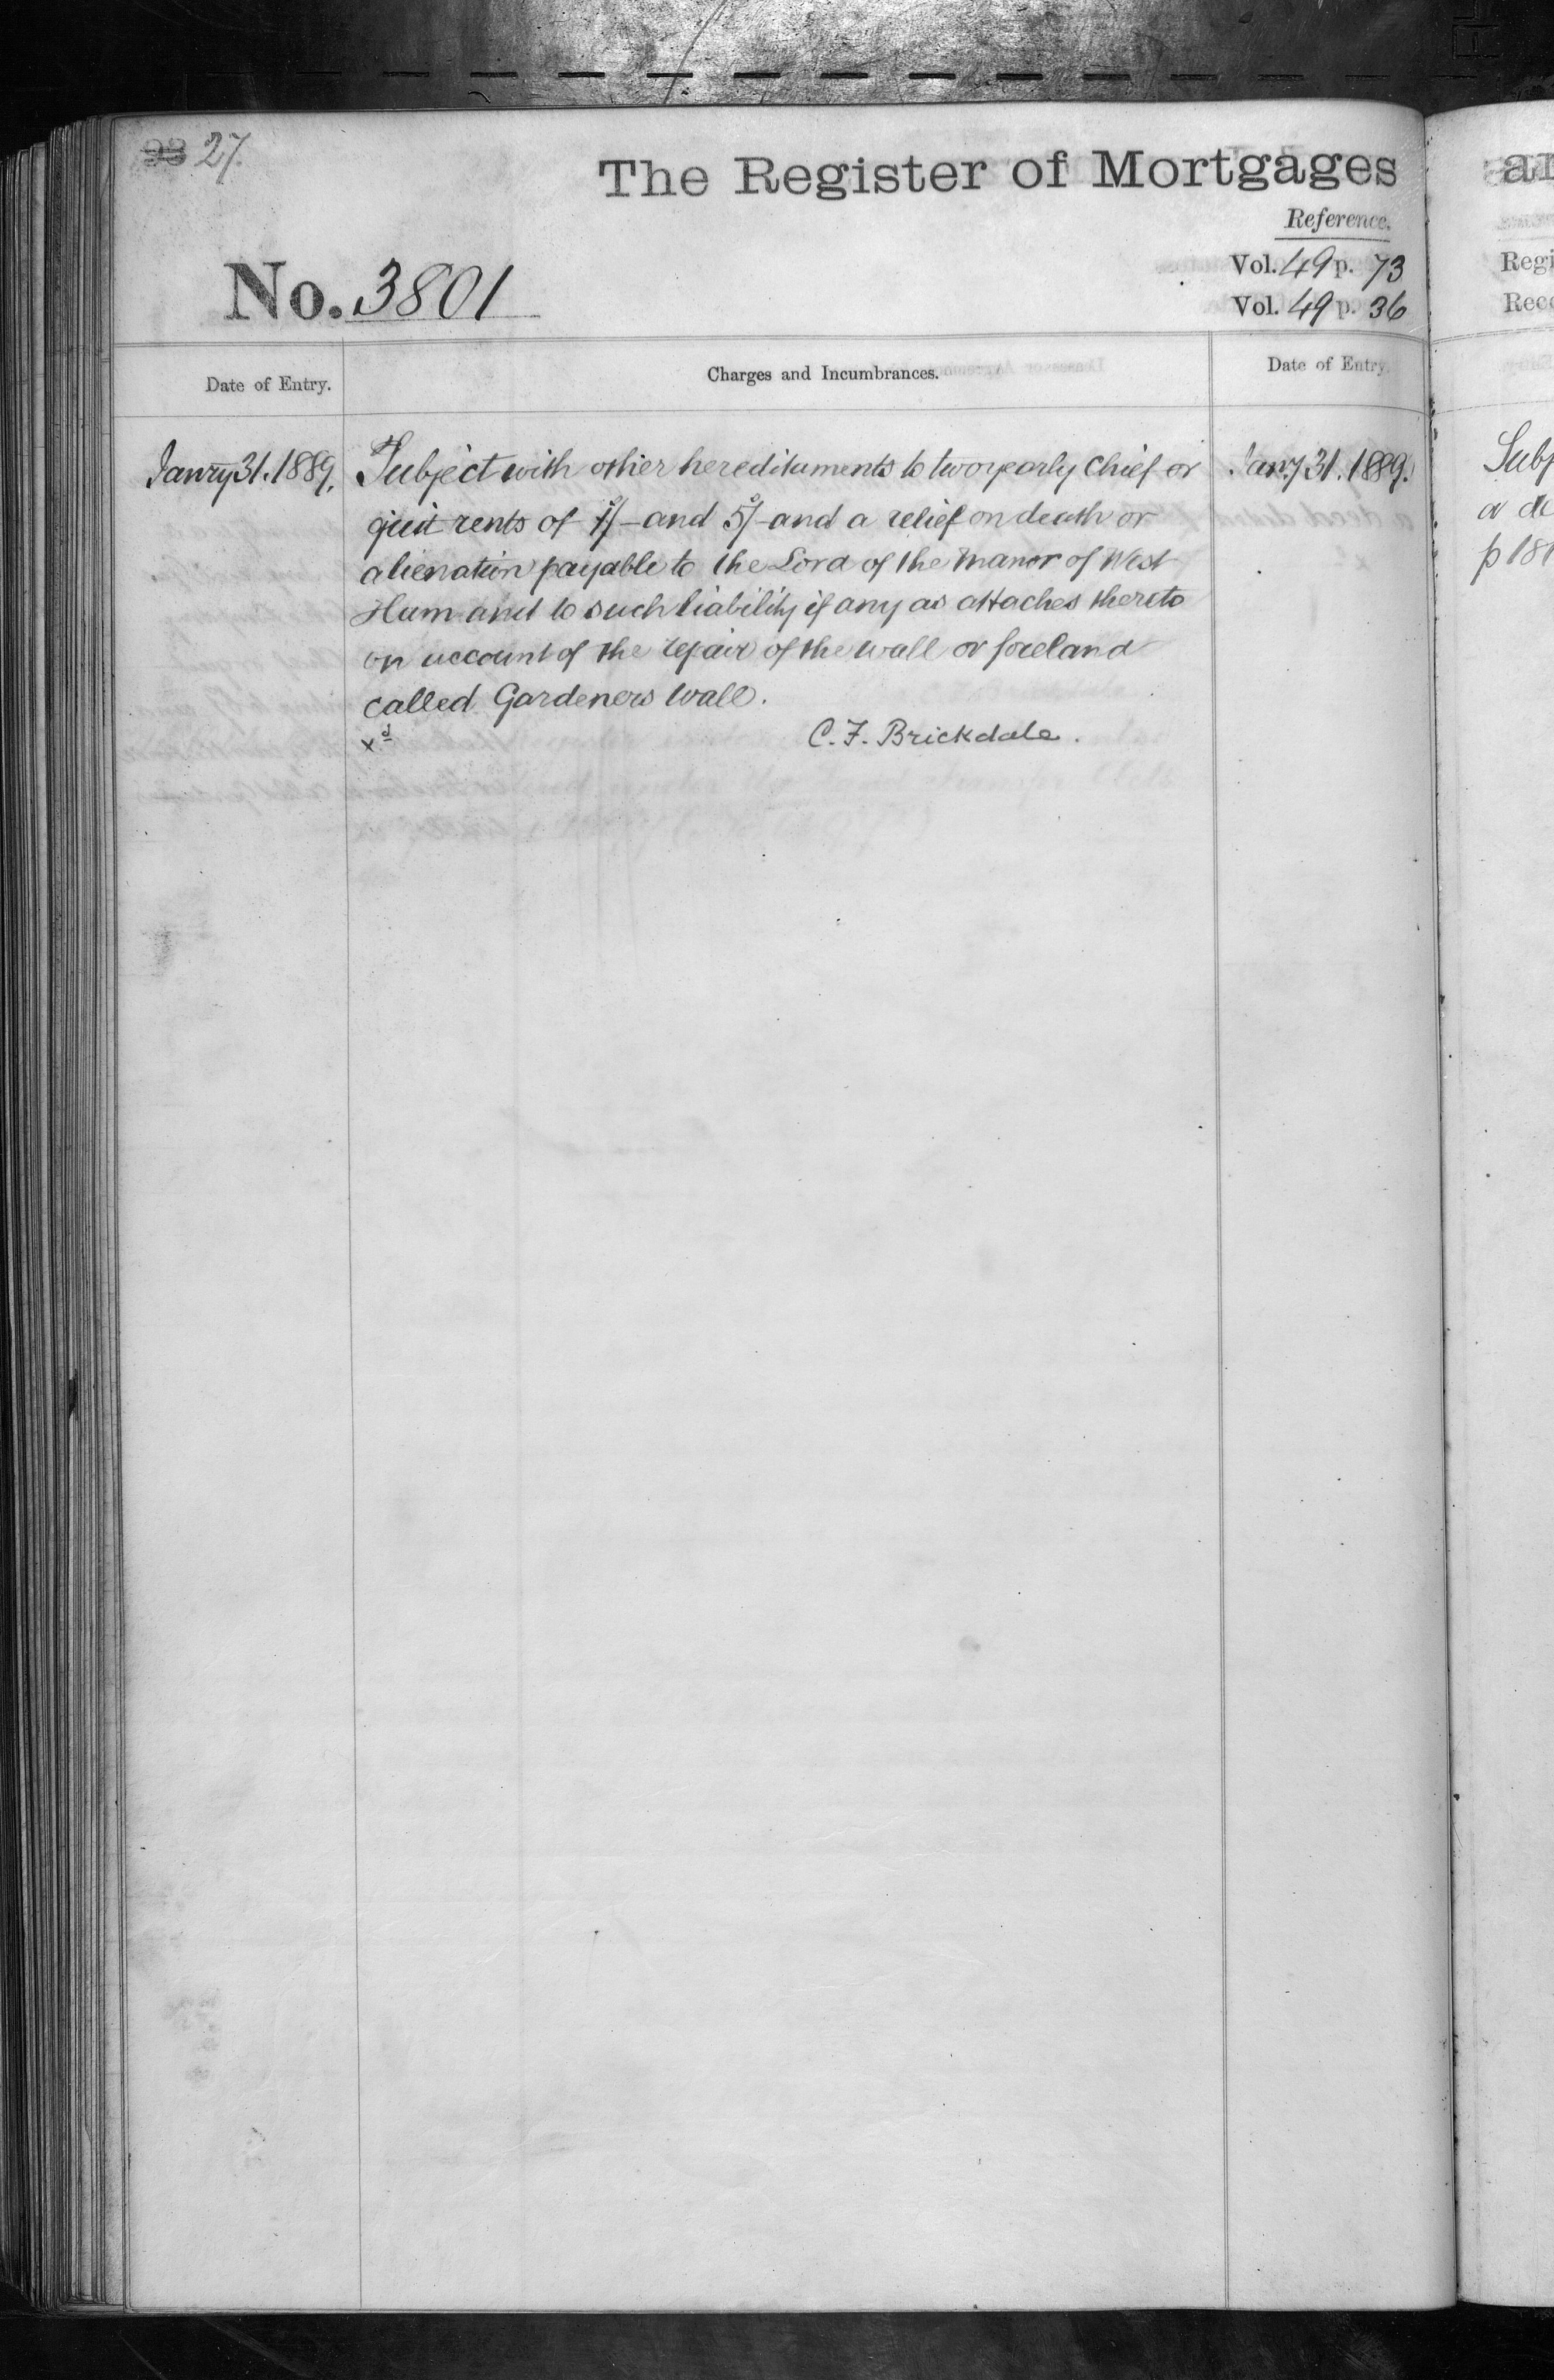 98 27.
The Register of Mortgages
Reference.
No. 3801
Vol. 49 p. 73
Vol. 49 p. 36
Date of Entry.
Charges and Incumbrances.
Date of Entry.
Janry 31. 1889.
Subject with other hereditaments to two yearly Chief or
quit rents of 1/- and 5/- and a relief on death or
alienation payable to the Lord of the Manor of West
Ham and to such liability if any as attaches thereto
on account of the repair of the wall or foreland
called Gardeners Wall.
xd
C. F. Brickdale.
Jany 31. 1889.
Regi
Reco
Subj
a de
p 181